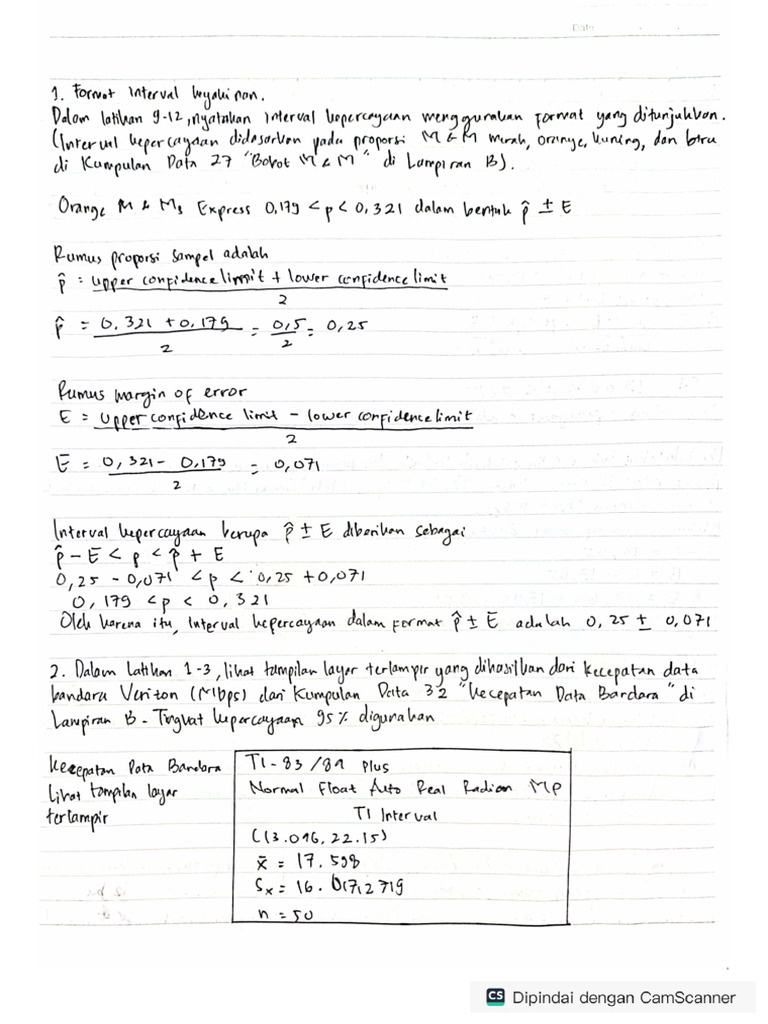 Date
1. Format Interval keyakinan.
Dalam latihan 9-12, nyatakan interval kepercayaan menggunakan format yang ditunjukkan.
(Interval kepercayaan didasarkan pada proporsi M & M merah, orange, kuning, dan biru
di Kumpulan Data 27 "Bobot M & M" di Lampiran B).
Orange M & Ms Express 0,179 < p < 0,321 dalam bentuk p̂ ± E
Rumus proporsi sampel adalah
p̂ = upper confidence limit + lower confidence limit
2
p̂ = 0,321 + 0,179 = 0,5 = 0,25
2 2
Rumus margin of error
E = upper confidence limit - lower confidence limit
2
E = 0,321 - 0,179 = 0,071
2
Interval kepercayaan berupa p̂ ± E diberikan sebagai
p̂ - E < p < p̂ + E
0,25 - 0,071 < p < 0,25 + 0,071
0,179 < p < 0,321
Oleh karena itu, interval kepercayaan dalam format p̂ ± E adalah 0,25 ± 0,071
2. Dalam Latihan 1-3, lihat tampilan layar terlampir yang dihasilkan dari kecepatan data
bandara Verizon (Mbps) dari Kumpulan Data 32 "kecepatan Data Bandara" di
Lampiran B - Tingkat kepercayaan 95% digunakan
kecepatan Data Bandara
lihat tampilan layar
terlampir
TI - 83 / 84 Plus
Normal Float Auto Real Radian MP
TI Interval
(13.046, 22.15)
x̄ = 17.598
Sx = 16.01712719
n = 50
CS Dipindai dengan CamScanner